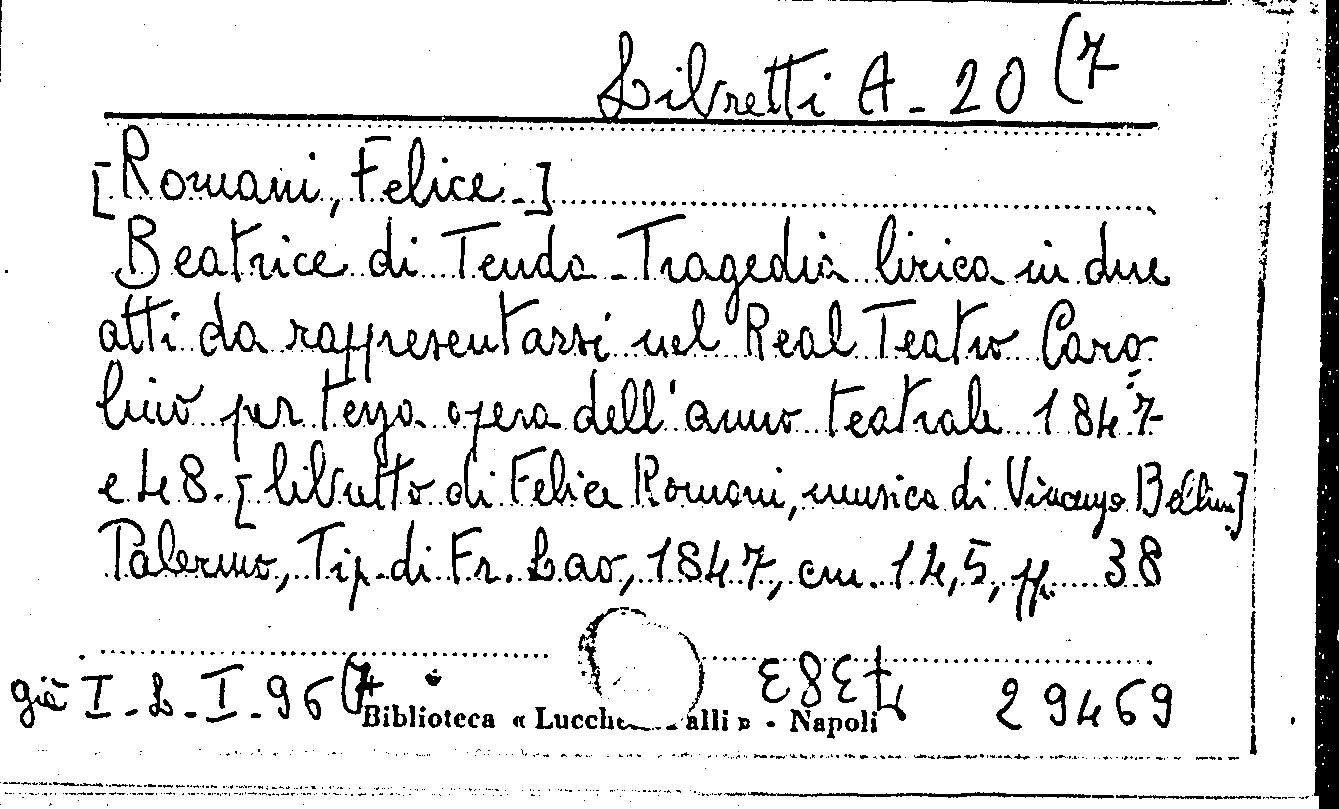 Libretti A - 20 (7
[Romani, Felice -]
Beatrice di Tenda - Tragedia lirica in due
atti da rappresentarsi nel Real Teatro Caro=
lino per terza opera dell'anno teatrale 1847
e 48. [libretto di Felice Romani, musica di Vincenzo Bellini]
Palermo, Tip. di Fr. Lao, 1847, cm. 14,5, pp. 38
già I - L - I - 96 (7
Biblioteca « Lucche alli » - Napoli
29469